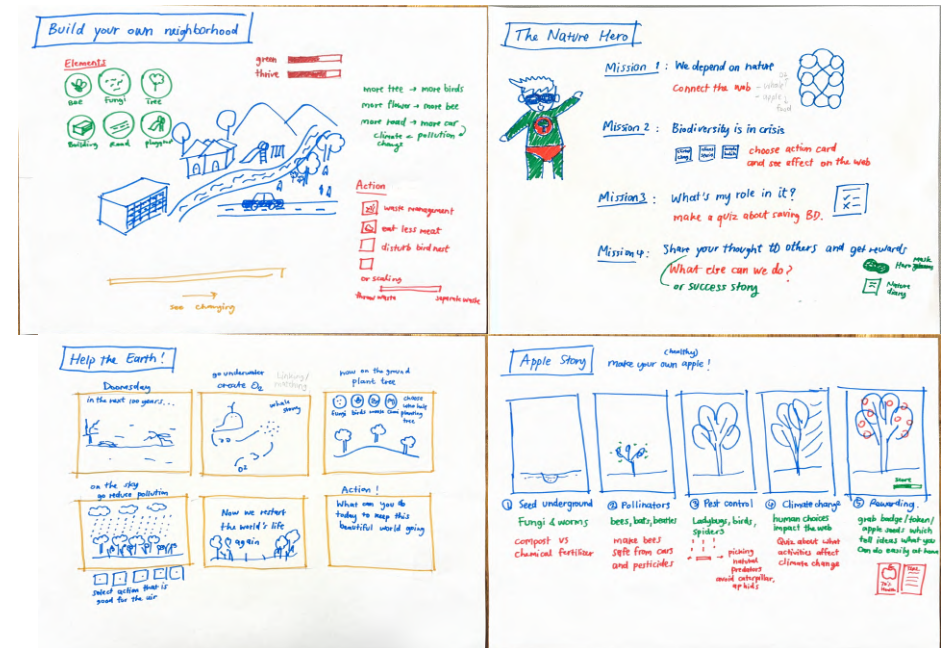 Build your own neighborhood
Elements
Bee
Fungi
Tree
Building
Road
green
thrive
more tree → more birds
more flower → more bee
more road → more car
climate ← pollution
change
Action
waste management
eat less meat
disturb bird nest
or scaling
throw waste
separate waste
see changing
The Nature Hero
Mission 1 : We depend on nature
Connect the web
- whale
- apple
food
Mission 2 : Biodiversity is in crisis
choose action card
and see effect on the web
Mission 3 : What's my role in it?
make a quiz about saving BD.
Mission 4 : Share your thought to others and get rewards
What else can we do?
or success story
Mask
Hero
Nature
diary
Help the Earth!
Doomsday
in the next 100 years...
go underwater
create O2
Linking/
matching
whale
O2
now on the ground
plant tree
fungi
birds
choose
who help
planting
tree
on the sky
go reduce pollution
select action that is
good for the air
Now we restart
the world's life
again
Action!
What can you do
today to keep this
beautiful world going
Apple Story
(healthy)
make your own apple!
① Seed underground
Fungi & worms
compost vs
chemical fertilizer
② Pollinators
bees, bats, beetles
make bees
safe from cars
and pesticides
③ Pest control
Ladybugs, birds,
spiders
picking
natural
predators
avoid caterpillar,
aphids
④ Climate change
human choices
impact the web
Quiz about what
activities affect
climate change
Share
⑤ Rewarding
grab badge/token/
apple seeds which
tell ideas what you
can do easily at home